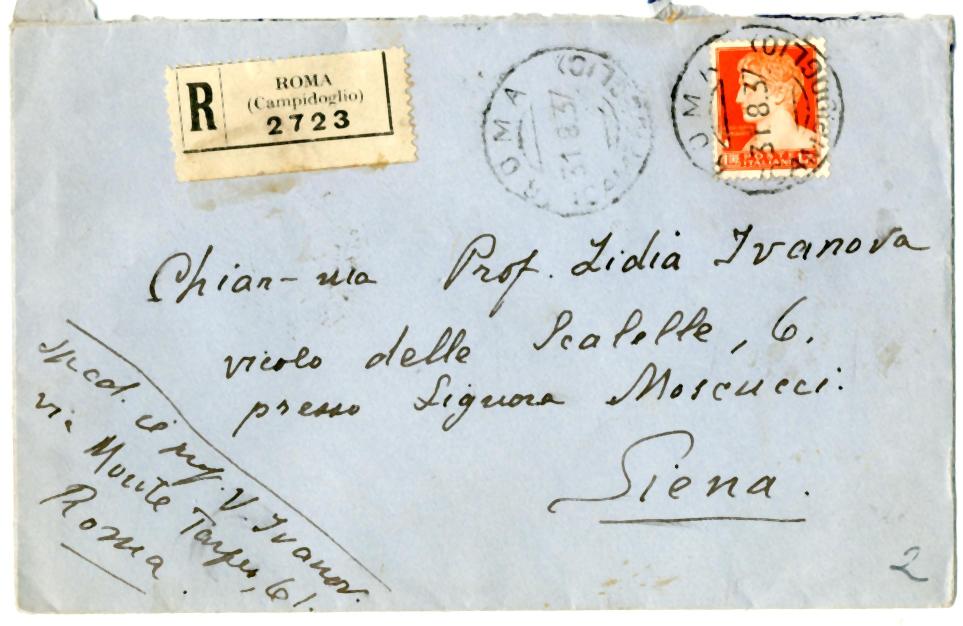 R
ROMA
(Campidoglio)
2723
ROMA (CAMPIDOGLIO)
31 8 37
ROMA (CAMPIDOGLIO)
31 8 37
POSTE
ITALIANE
Chiar-ma Prof. Lidia Ivanova
vicolo delle Scalelle, 6.
presso Signora Moscucci.
Siena.
Sped. il prof. V. Ivanov.
via Monte Tarpeo, 61.
Roma.
2